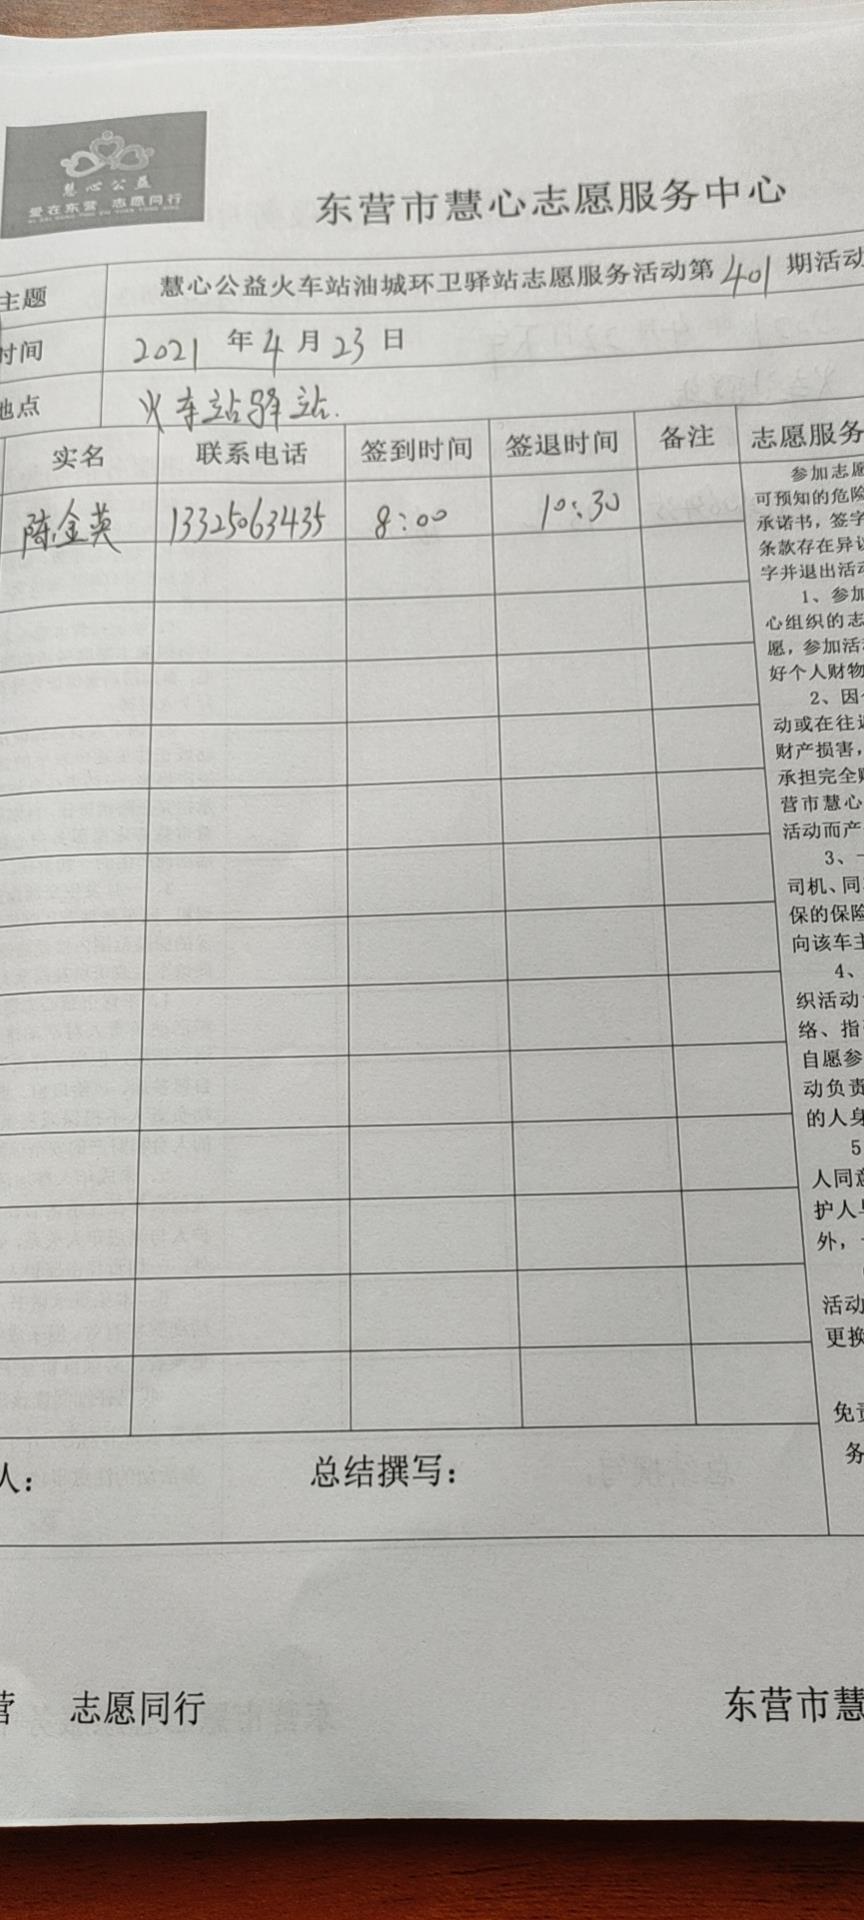 慧心公益
爱在东营 志愿同行
东营市慧心志愿服务中心
主题 慧心公益火车站油城环卫驿站志愿服务活动第401期活动
时间 2021年4月23日
地点 火车站驿站.
实名 联系电话 签到时间 签退时间 备注 志愿服务
陈金英 13325063435 8:00 10:30
参加志愿
可预知的危险
承诺书，签字
条款存在异议
字并退出活动
1、参加
心组织的志
愿，参加活动
好个人财物
2、因个
动或在往返
财产损害，
承担完全
营市慧心
活动而产
3、一
司机、同
保的保险
向该车主
4、
织活动
络、指
自愿参
动负责
的人身
5
人同意
护人与
外，
活动
更换
免责
务
人： 总结撰写：
营 志愿同行 东营市慧